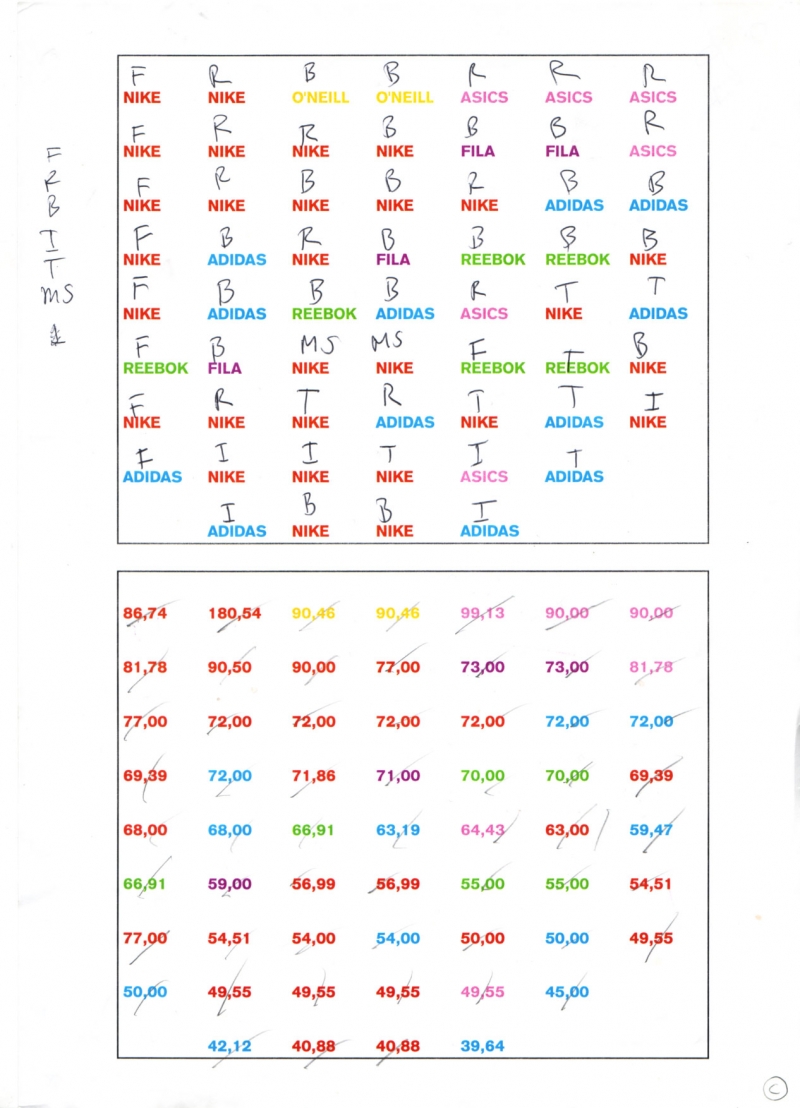 F R B B R R R
NIKE NIKE O'NEILL O'NEILL ASICS ASICS ASICS
F R R B B B R
NIKE NIKE NIKE NIKE FILA FILA ASICS
F R B B R B B
NIKE NIKE NIKE NIKE NIKE ADIDAS ADIDAS
F B R B B B B
NIKE ADIDAS NIKE FILA REEBOK REEBOK NIKE
F B B B R T T
NIKE ADIDAS REEBOK ADIDAS ASICS NIKE ADIDAS
F B MS MS F T B
REEBOK FILA NIKE NIKE REEBOK REEBOK NIKE
F R T R T T I
NIKE NIKE NIKE ADIDAS NIKE ADIDAS NIKE
F I I T I T
ADIDAS NIKE NIKE NIKE ASICS ADIDAS
I B B I
ADIDAS NIKE NIKE ADIDAS
F
R
B
I
T
MS
86,74 180,54 90,46 90,46 99,13 90,00 90,00
81,78 90,50 90,00 77,00 73,00 73,00 81,78
77,00 72,00 72,00 72,00 72,00 72,00 72,00
69,39 72,00 71,86 71,00 70,00 70,00 69,39
68,00 68,00 66,91 63,19 64,43 63,00 59,47
66,91 59,00 56,99 56,99 55,00 55,00 54,51
77,00 54,51 54,00 54,00 50,00 50,00 49,55
50,00 49,55 49,55 49,55 49,55 45,00
42,12 40,88 40,88 39,64
C